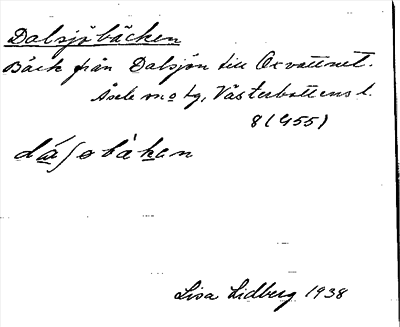 Dalsjöbäcken
Bäck från Dalsjön till Oxvattnet.
Åsele sn o tg, Västerbottens l.
8(455)
Lisa Lidberg 1938